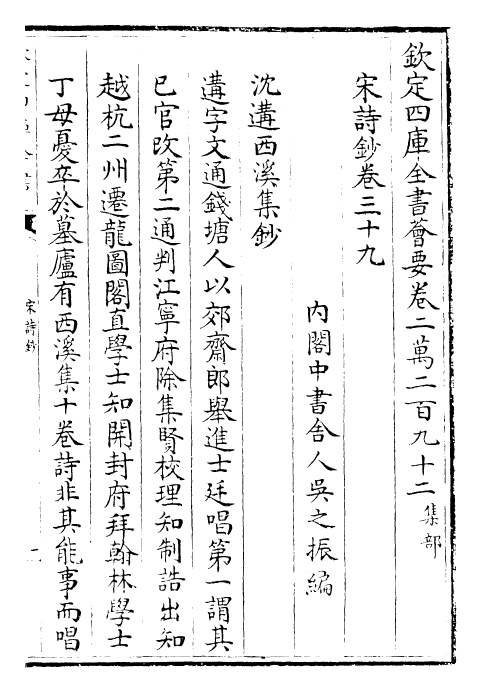 欽定四庫全書薈要卷二萬二百九十二 集部
宋詩鈔卷三十九
內閣中書舍人吳之振編
沈遘西溪集鈔
遘字文通錢塘人以郊齋郎舉進士廷唱第一謂其
已官改第二通判江寧府除集賢校理知制誥出知
越杭二州遷龍圖閣直學士知開封府拜翰林學士
丁母憂卒於墓廬有西溪集十卷詩非其能事而唱
宋詩鈔
一